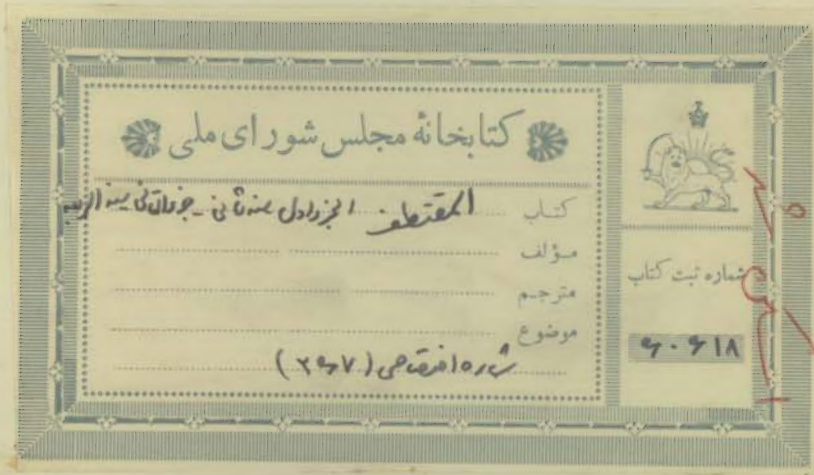 کتابخانهٔ مجلس شورای ملی
کتاب المقتطف الجزء الاول سنه ثانی - جزء الثانی سنه
مؤلف
مترجم
موضوع
شماره اختصاصی (۲۶۷)
شماره ثبت کتاب
۶۰۶۱۸